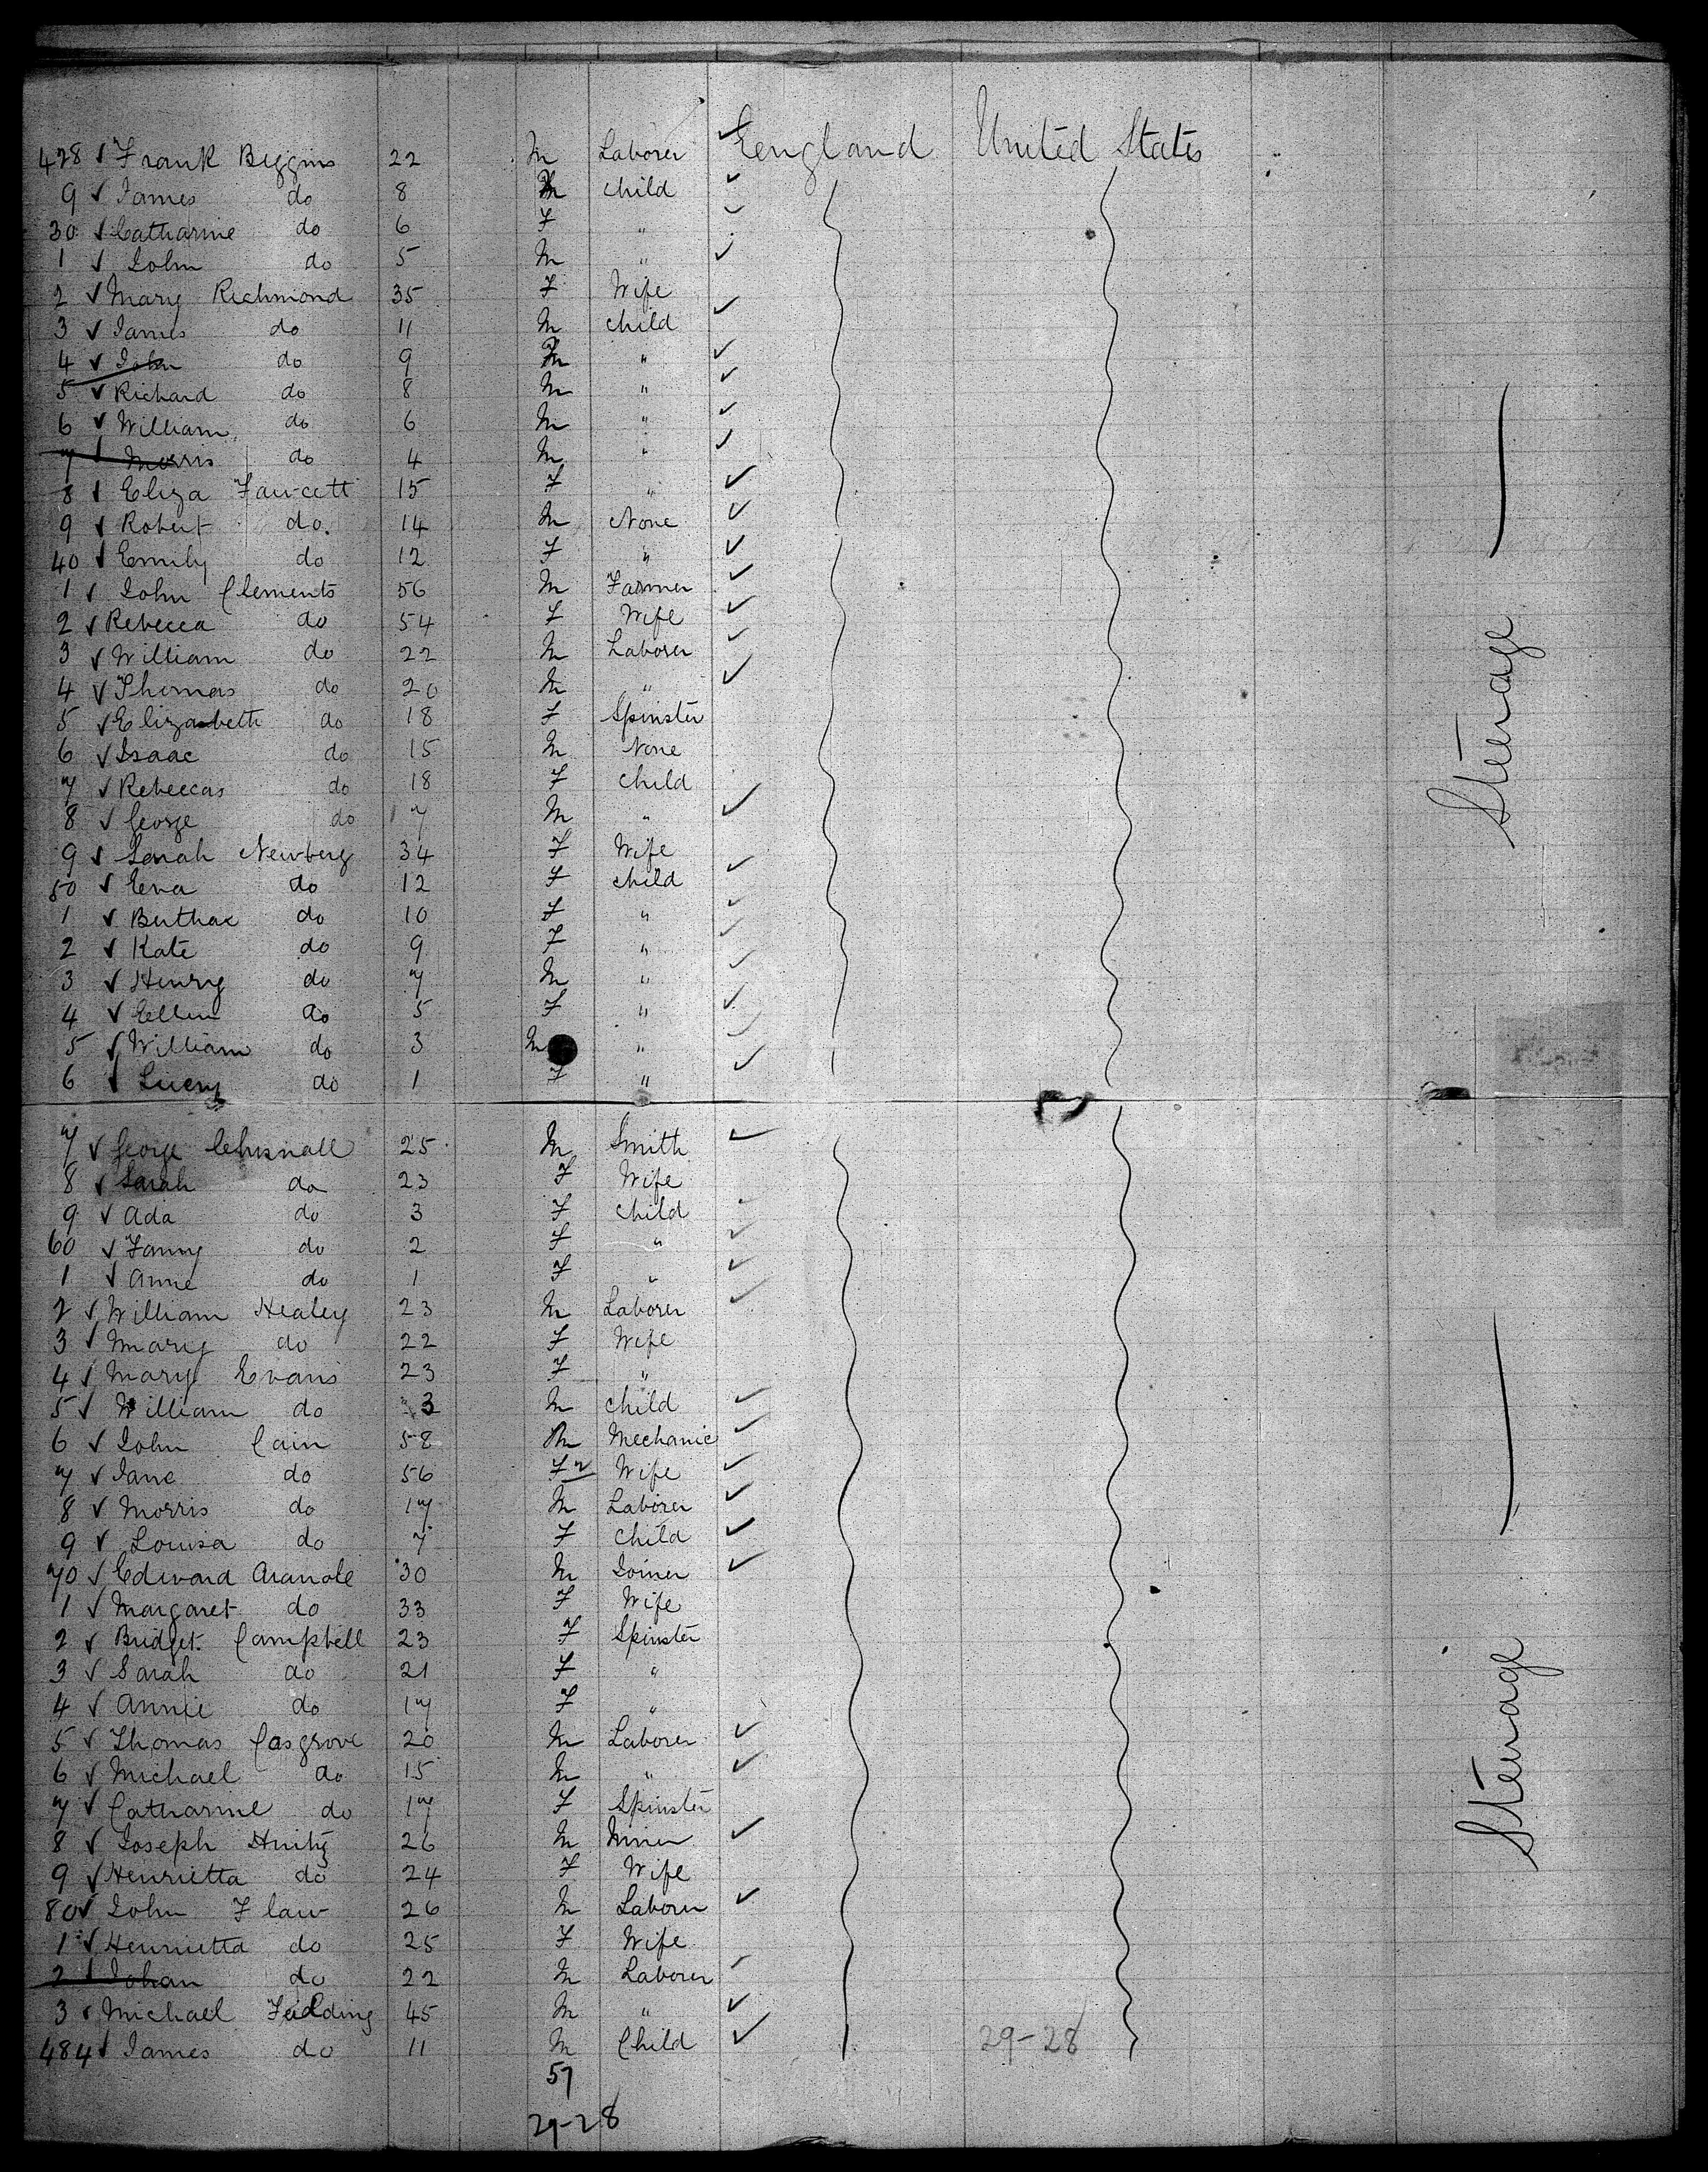 428 Frank Biggins 22 M Laborer England United States
9 James do 8 M child
30 Catharine do 6 F "
1 John do 5 M "
2 Mary Richmond 35 F Wife
3 James do 11 M child
4 John do 9 M "
5 Richard do 8 M "
6 William do 6 M "
7 Morris do 4 M "
8 Eliza Fawcett 15 F "
9 Robert do. 14 M None
40 Emily do 12 F "
1 John Clements 56 M Farmer
2 Rebecca do 54 F Wife
3 William do 22 M Laborer
4 Thomas do 20 M "
5 Elizabeth do 18 F Spinster
6 Isaac do 15 M None
7 Rebeccas do 18 F child
8 George do 7 M "
9 Sarah Newberg 34 F Wife
50 Eva do 12 F child
1 Berthae do 10 F "
2 Kate do 9 F "
3 Henry do 7 M "
4 Ellen do 5 F "
5 William do 3 M "
6 Lucy do 1 F "
Steerage
7 George 25 M Smith
8 Sarah do 23 F Wife
9 Ada do 3 F child
60 Fanny do 2 F "
1 Anne do 1 F "
2 William Healey 23 M Laborer
3 Mary do 22 F Wife
4 Mary Evans 23 F "
5 William do 3 M child
6 John Cain 58 M Mechanic
7 Jane do 56 F Wife
8 Morris do 17 M Laborer
9 Louisa do 7 F child
70 Edward 30 M Joiner
1 Margaret do 33 F Wife
2 Bridget Campbell 23 F Spinster
3 Sarah do 21 F "
4 Annie do 17 F "
5 Thomas Casgrove 20 M Laborer
6 Michael do 15 M "
7 Catharine do 17 F Spinster
8 Joseph 26 M Miner
9 Henrietta do 24 F Wife
80 John Flaw 26 M Laborer
1 Henrietta do 25 F Wife
2 Johan do 22 M Laborer
3 Michael 45 M "
484 James do 11 M Child 29-28
Steerage
57
29-28